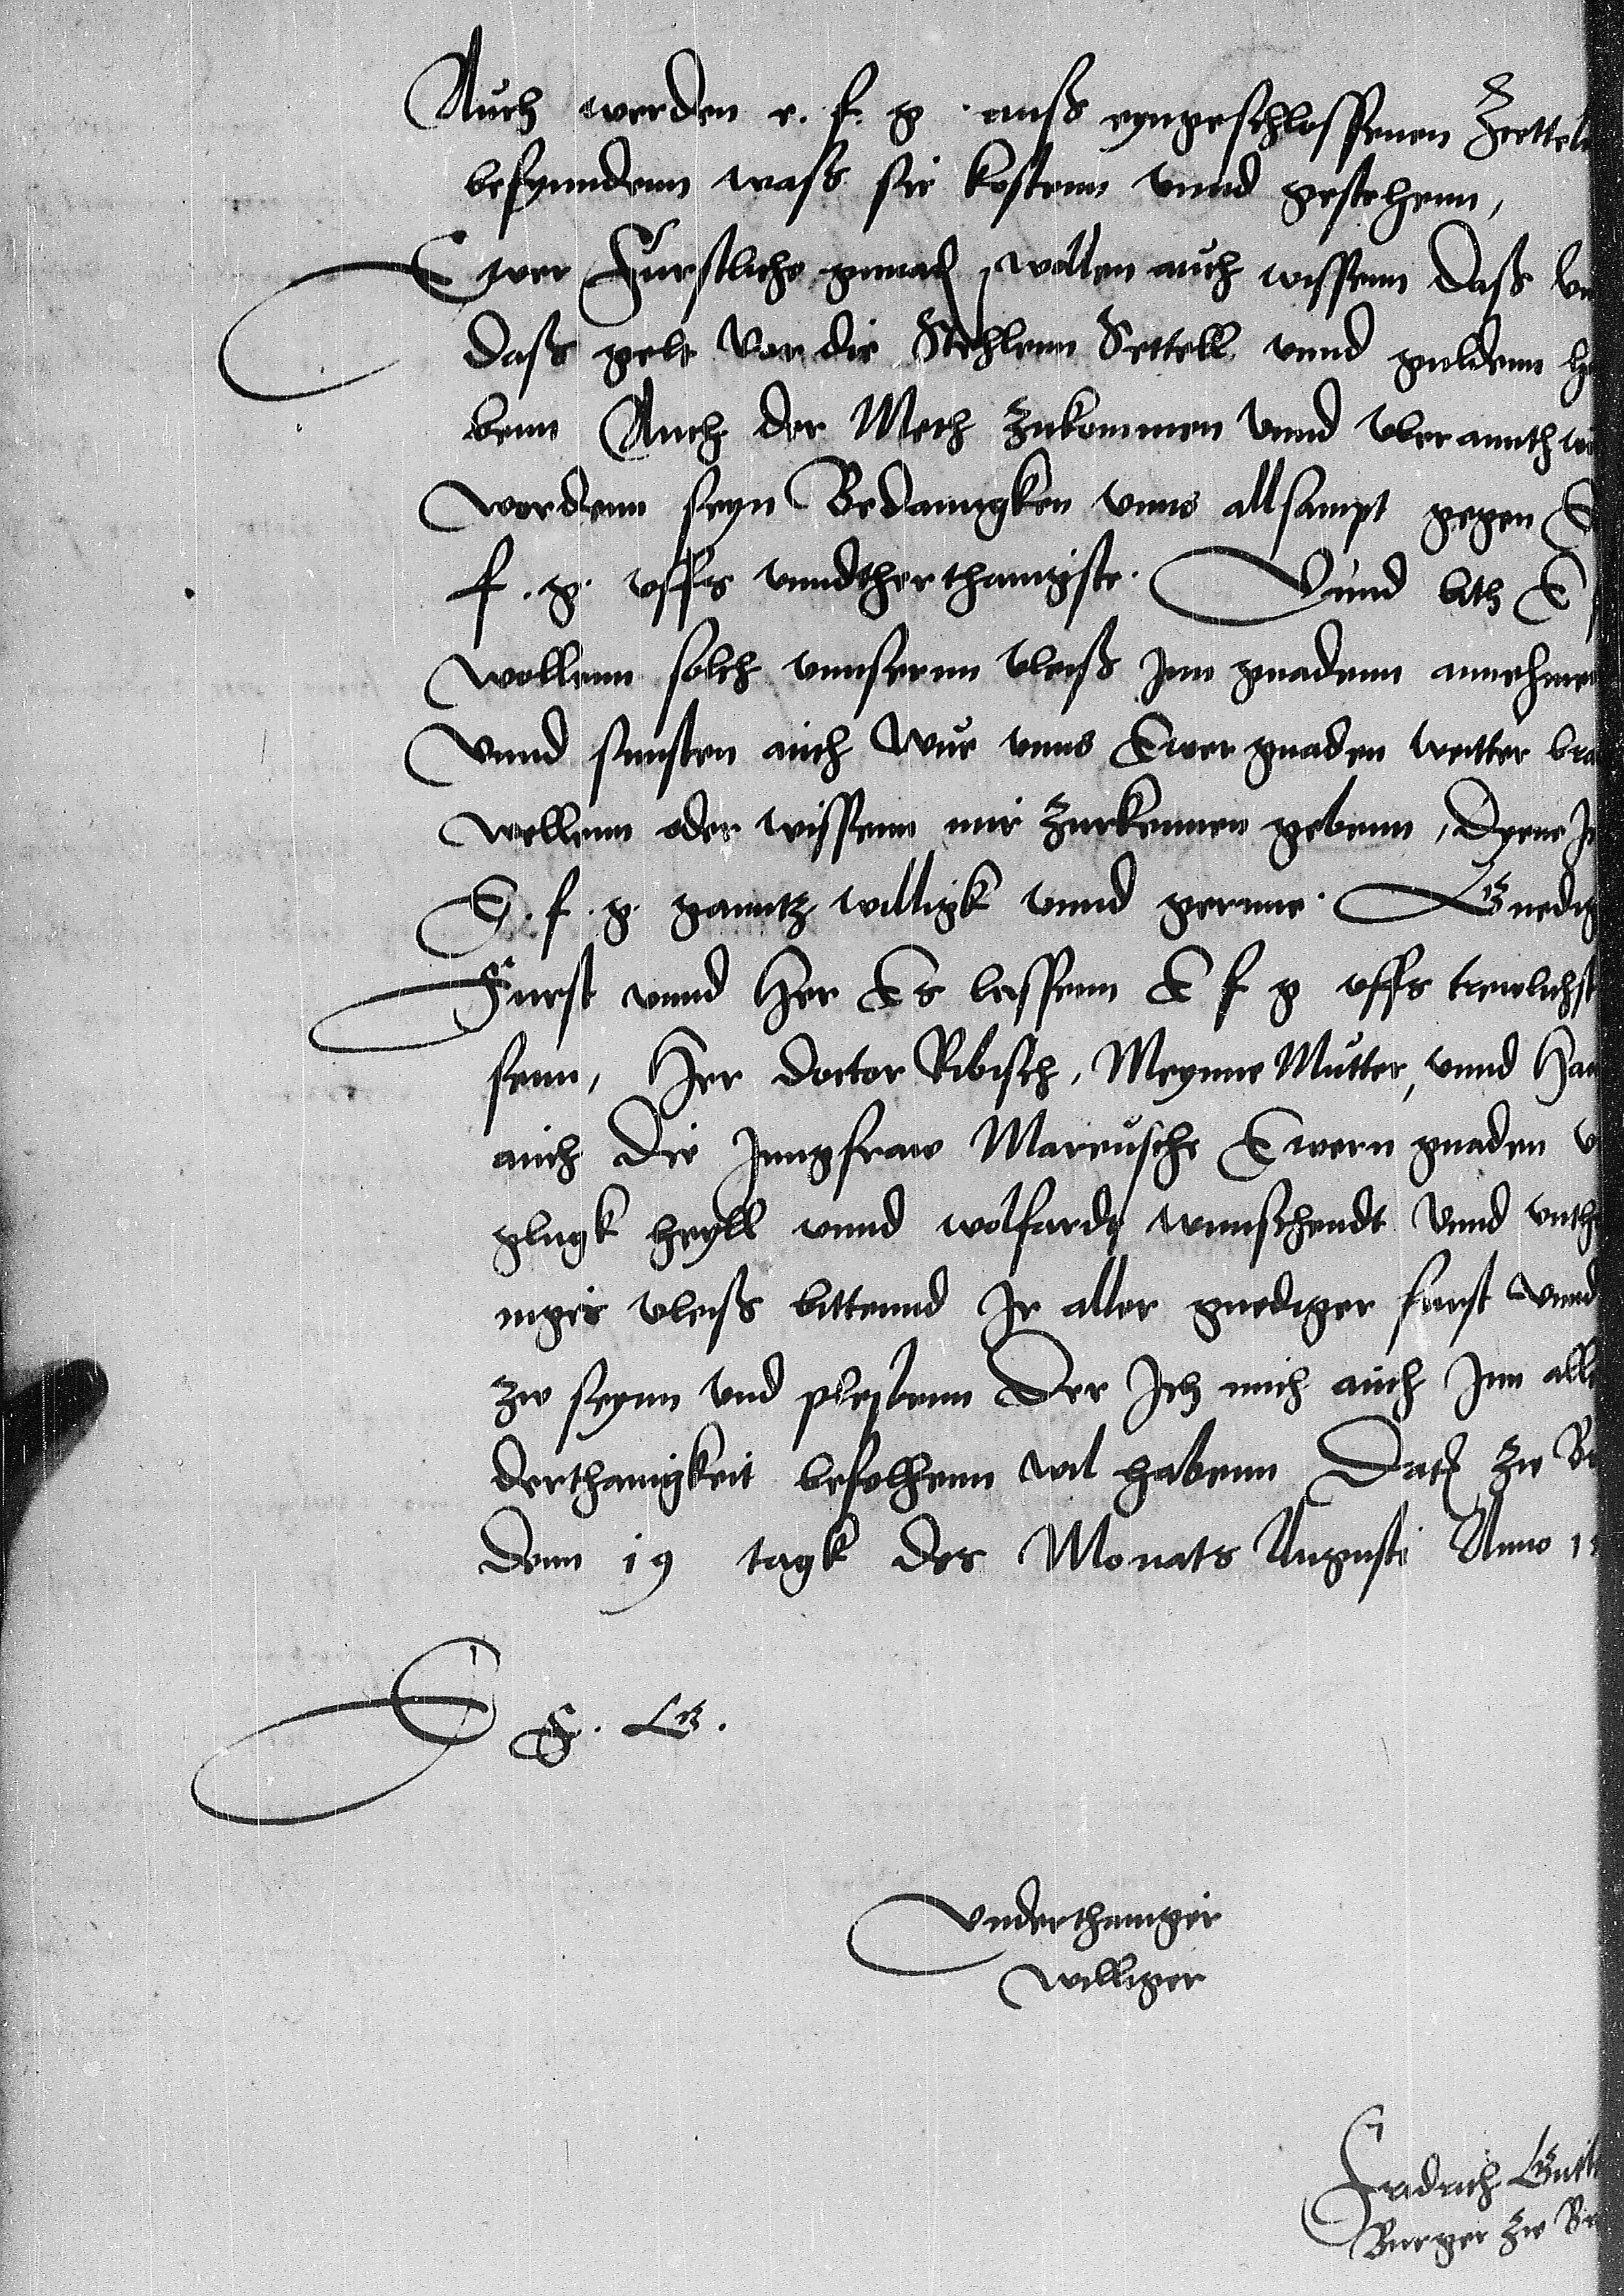 Auch werden e. f. g. auß eyngeschlossenen Zettel
befynndenn waß sie kostenn vnnd gestehenn,
Ewer Furstliche gnnad, wollen auch wissenn daß
daß gelt vor die Stehlenn Settell vnnd guldenn
benn Auch der Mech zukommen vnnd vberannth
wordenn seyn Bedanngken vnns allsampt gegen E
f. g. vffs vnndtherthanigste. Vnnd bith E
wollenn solch vnnserenn vleiß Jnn gnadenn annehmen
Vnnd sunsten auch wue vnns Ewer gnaden weitter
wellenn oder wissenn mir zurkennen gebenn, Dyene
E. f. g. ganntz willigk vnnd gernne. Gnedig
Furst vnnd Her Es lassenn E f g vffs treulichst
senn, Her doctor Ribisch, Meynne Mutter, vnnd
auch die Jungfraw Mareusche Ewern gnaden
glugk heyll vnnd wolfardt wunschendt vnnd
niges vleiß bittennd Jr aller gnediger furst vnnd
zw seynn vnd pleibenn Der Jch mich auch Jnn
derthanigkeit befelhenn wil habenn Dat zw
denn 19 tagk des Monats Augusti Anno
E F. G.
Vnderthaniger
williger
Fridrich
Burger zw